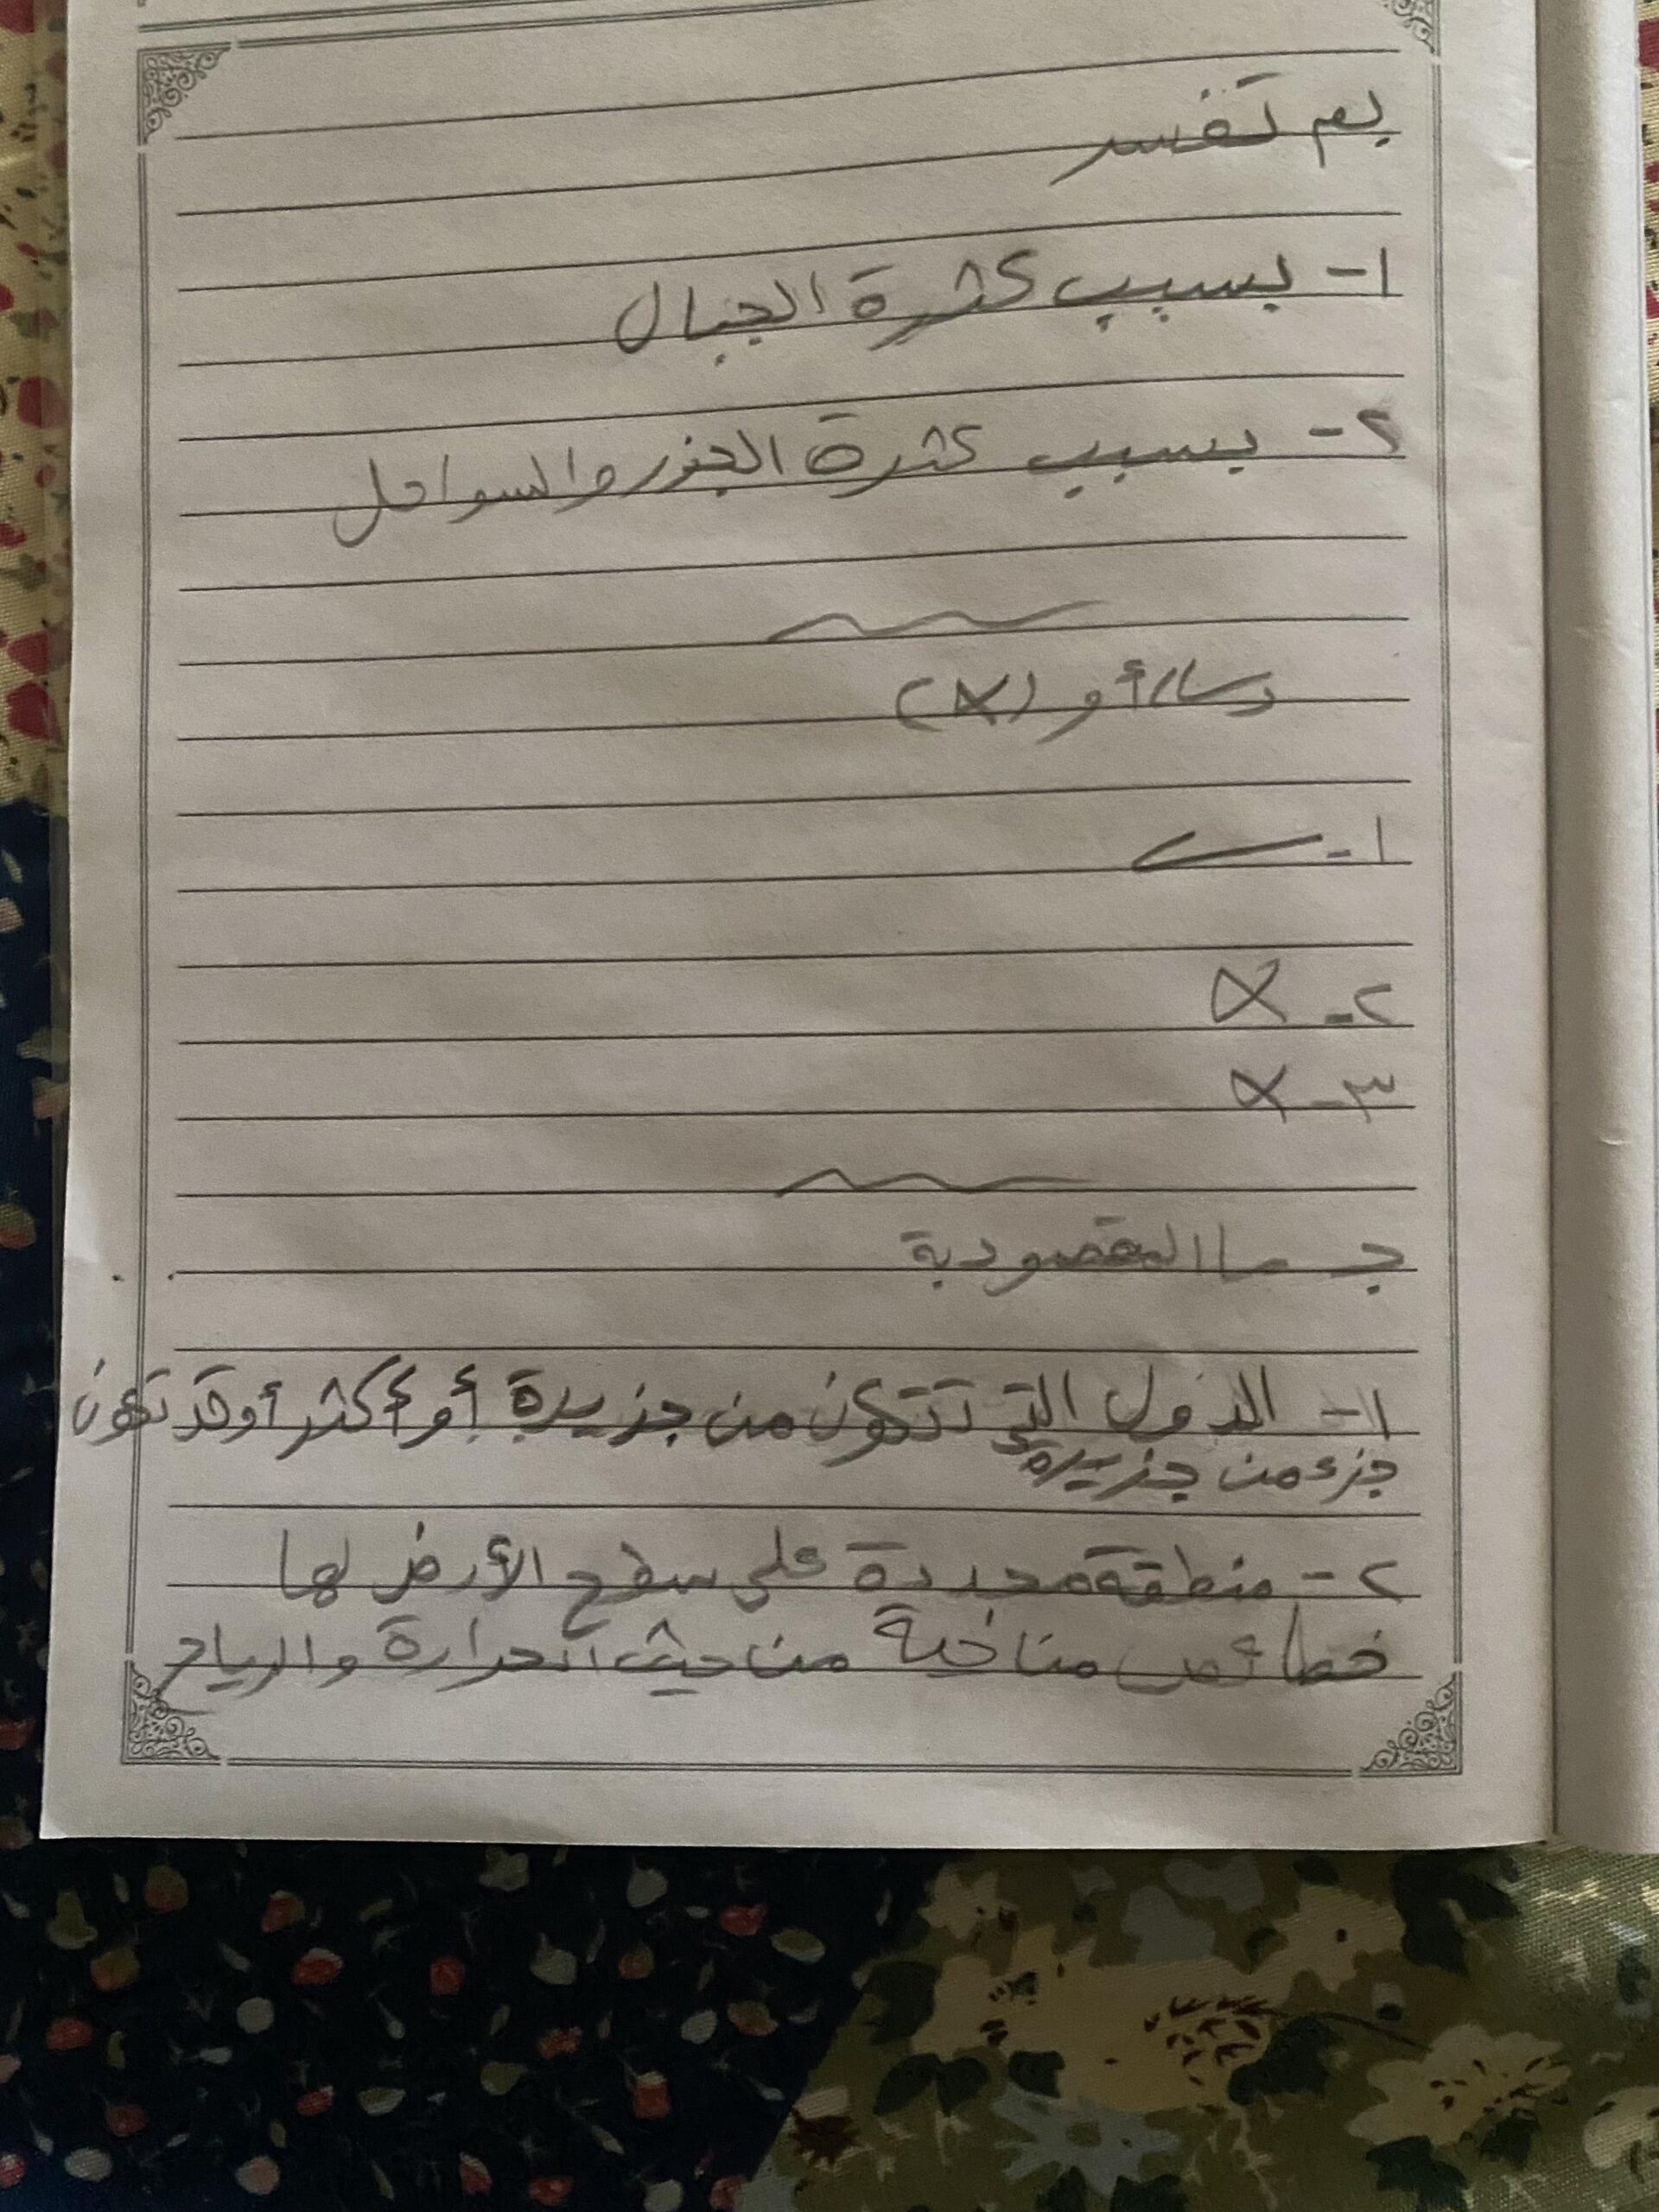 بم تفسر
١- بسبب كثرة الجبال
٢- بسبب كثرة الجزر والسواحل
أو (X)
١- ✓
٢- X
٣- X
جـ ما المقصود بة
١- الدول التي تتكون من جزيرة أو أكثر أو قد تكون
جزء من جزيرة
٢- منطقة محددة على سطح الأرض لها
خصائص مناخية من حيث الحرارة والرياح